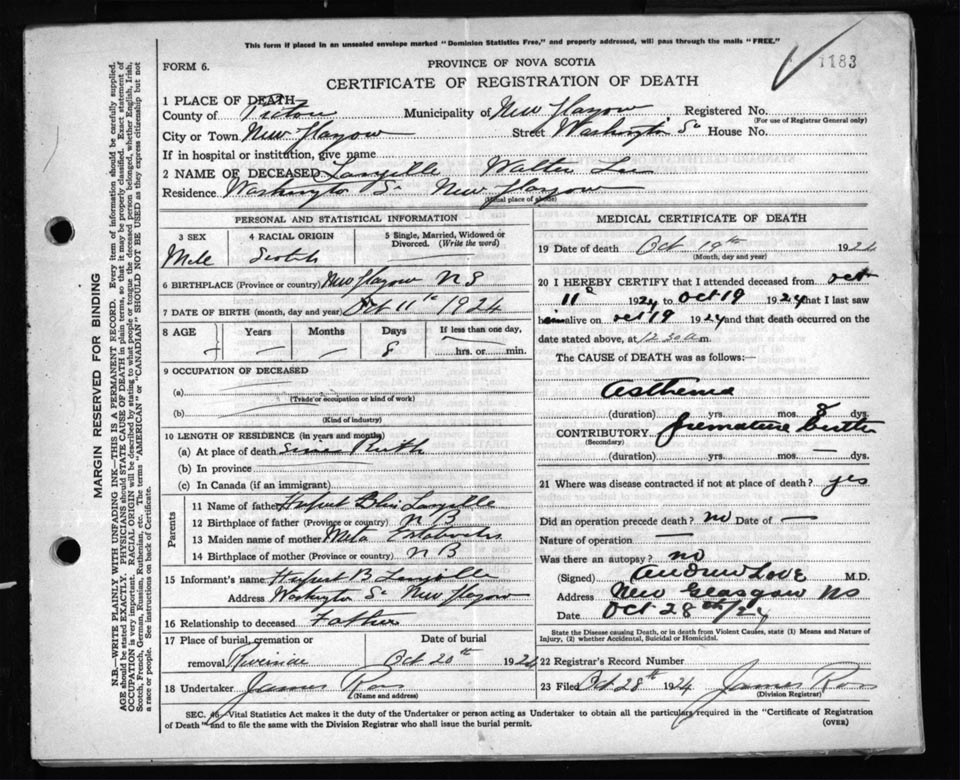 This form if placed in an unsealed envelope marked "Dominion Statistics Free," and properly addressed, will pass through the mails "FREE."
1183
FORM 6.
PROVINCE OF NOVA SCOTIA
CERTIFICATE OF REGISTRATION OF DEATH
1 PLACE OF DEATH
County of Pictou Municipality of New Glasgow Registered No.
(For use of Registrar General only)
City or Town New Glasgow Street Washington St House No.
If in hospital or institution, give name
2 NAME OF DECEASED Langille Walter Lee
Residence Washington St New Glasgow
(Usual place of abode)
PERSONAL AND STATISTICAL INFORMATION
3 SEX
Male
4 RACIAL ORIGIN
Scotch
5 Single, Married, Widowed or Divorced. (Write the word)
6 BIRTHPLACE (Province or country) New Glasgow N S
7 DATE OF BIRTH (month, day and year) Oct 11th 1924
8 AGE Years Months Days If less than one day,
8 hrs. or min.
9 OCCUPATION OF DECEASED
(a)
(Trade or occupation or kind of work)
(b)
(Kind of industry)
10 LENGTH OF RESIDENCE (in years and months)
(a) At place of death since Birth
(b) In province
(c) In Canada (if an immigrant)
Parents
11 Name of father Langille
12 Birthplace of father (Province or country) N B
13 Maiden name of mother Meta
14 Birthplace of mother (Province or country) N B
15 Informant's name B Langille
Address Washington St New Glasgow
16 Relationship to deceased Father
17 Place of burial, cremation or Date of burial
removal Riverside Oct 20th 1924
18 Undertaker James Ross
(Name and address)
MEDICAL CERTIFICATE OF DEATH
19 Date of death Oct 19th 1924
(Month, day and year)
20 I HEREBY CERTIFY that I attended deceased from Oct
11th 1924 to Oct 19 1924 that I last saw
him alive on Oct 19 1924 and that death occurred on the
date stated above, at 12 30 a m.
The CAUSE of DEATH was as follows:—
Asthenia
(duration) yrs. mos. 8 dys.
CONTRIBUTORY Premature birth
(Secondary)
(duration) yrs. mos. — dys.
21 Where was disease contracted if not at place of death? yes
Did an operation precede death? no Date of —
Nature of operation —
Was there an autopsy? no
(Signed) Andrew Love M.D.
Address New Glasgow NS
Date Oct 28th/24
State the Disease causing Death, or in death from Violent Causes, state (1) Means and Nature of
Injury, (2) whether Accidental, Suicidal or Homicidal.
22 Registrar's Record Number
23 Filed Oct 28th 1924 James Ross
(Division Registrar)
SEC. 46—Vital Statistics Act makes it the duty of the Undertaker or person acting as Undertaker to obtain all the particulars required in the "Certificate of Registration
of Death" and to file the same with the Division Registrar who shall issue the burial permit. (OVER)
MARGIN RESERVED FOR BINDING
N.B.—WRITE PLAINLY WITH UNFADING INK—THIS IS A PERMANENT RECORD. Every item of information should be carefully supplied.
AGE should be stated EXACTLY. PHYSICIANS should STATE CAUSE OF DEATH in plain terms, so that it may be properly classified. Exact statement of
OCCUPATION is very important. RACIAL ORIGIN will be described by stating to what people or tongue the deceased person belonged, whether English, Irish,
Scotch, French, German, Russian, Ruthenian, etc. The terms "AMERICAN" or "CANADIAN" SHOULD NOT BE USED as they express citizenship but not
a race or people. See instructions on back of Certificate.